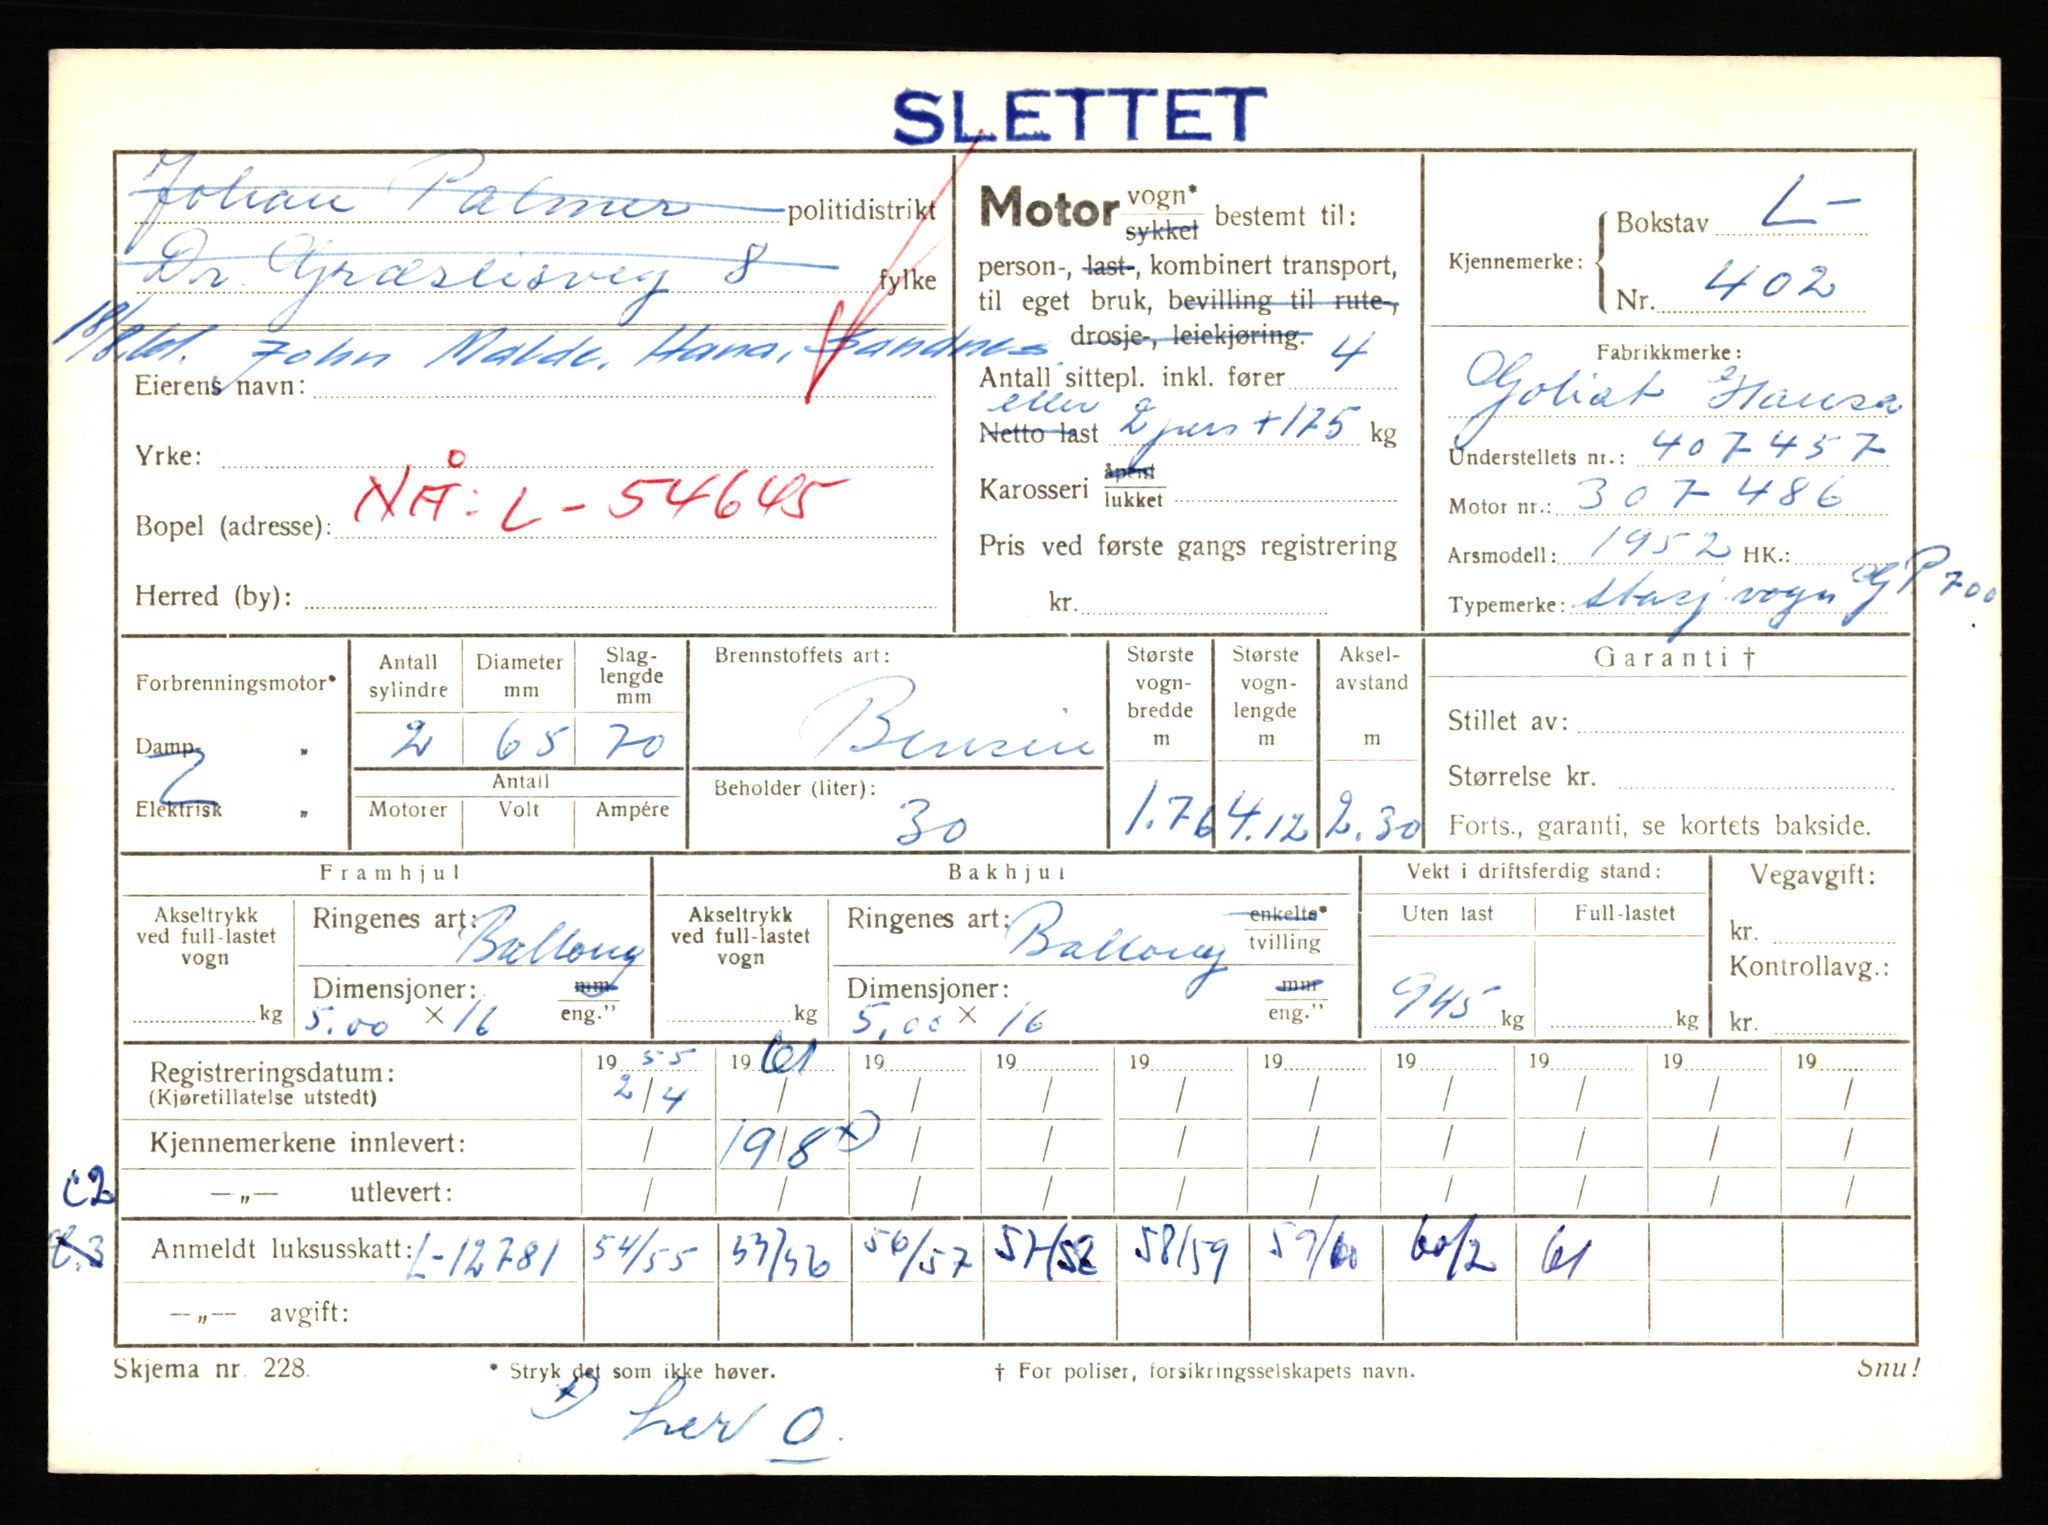 SLETTET
Johan Palmer politidistrikt
Dr. Græslisveg 8 fylke
18/8 61. John Malde, Hana, Sandnes
Eierens navn:
Yrke:
NÅ: L-54645
Bopel (adresse):
Herred (by):
Motor vogn* sykkel bestemt til:
person-, last-, kombinert transport,
til eget bruk, bevilling til rute-,
drosje-, leiekjøring.
Antall sittepl. inkl. fører 4
eller
Netto last 2 pers + 175 kg
Karosseri åpent lukket
Pris ved første gangs registrering
kr.
Kjennemerke: Bokstav L-
Nr. 402
Fabrikkmerke:
Goliat Hansa
Understellets nr.: 407457
Motor nr.: 307486
Arsmodell: 1952 HK.:
Typemerke: Stasj.vogn GP 700
Forbrenningsmotor*
Damp- „
Elektrisk „
Antall sylindre 2
Diameter mm 65
Slaglengde mm 70
Antall
Motorer Volt Ampére
Brennstoffets art:
Bensin
Beholder (liter):
30
Største vognbredde m 1.76
Største vognlengde m 4.12
Akselavstand m 2.30
Garanti †
Stillet av:
Størrelse kr.
Forts., garanti, se kortets bakside.
Framhjul
Akseltrykk ved full-lastet vogn kg
Ringenes art: Ballong
Dimensjoner: mm eng."
5.00 × 16
Bakhjul
Akseltrykk ved full-lastet vogn kg
Ringenes art: Ballong enkelte* tvilling
Dimensjoner: mm eng."
5.00 × 16
Vekt i driftsferdig stand:
Uten last Full-lastet
945 kg kg
Vegavgift:
kr.
Kontrollavg.:
kr.
Registreringsdatum: 19 55 19 61 19 19 19 19 19 19 19 19
(Kjøretillatelse utstedt) 2/4 / / / / / / / / /
Kjennemerkene innlevert: / 19/8 x) / / / / / / / /
C2 —„— utlevert: / / / / / / / / / /
Anmeldt luksusskatt: L-12781 54/55 55/56 56/57 57/58 58/59 59/60 60/2 61
—„— avgift:
Skjema nr. 228. * Stryk det som ikke høver. † For poliser, forsikringsselskapets navn. Snu!
x) her 0.